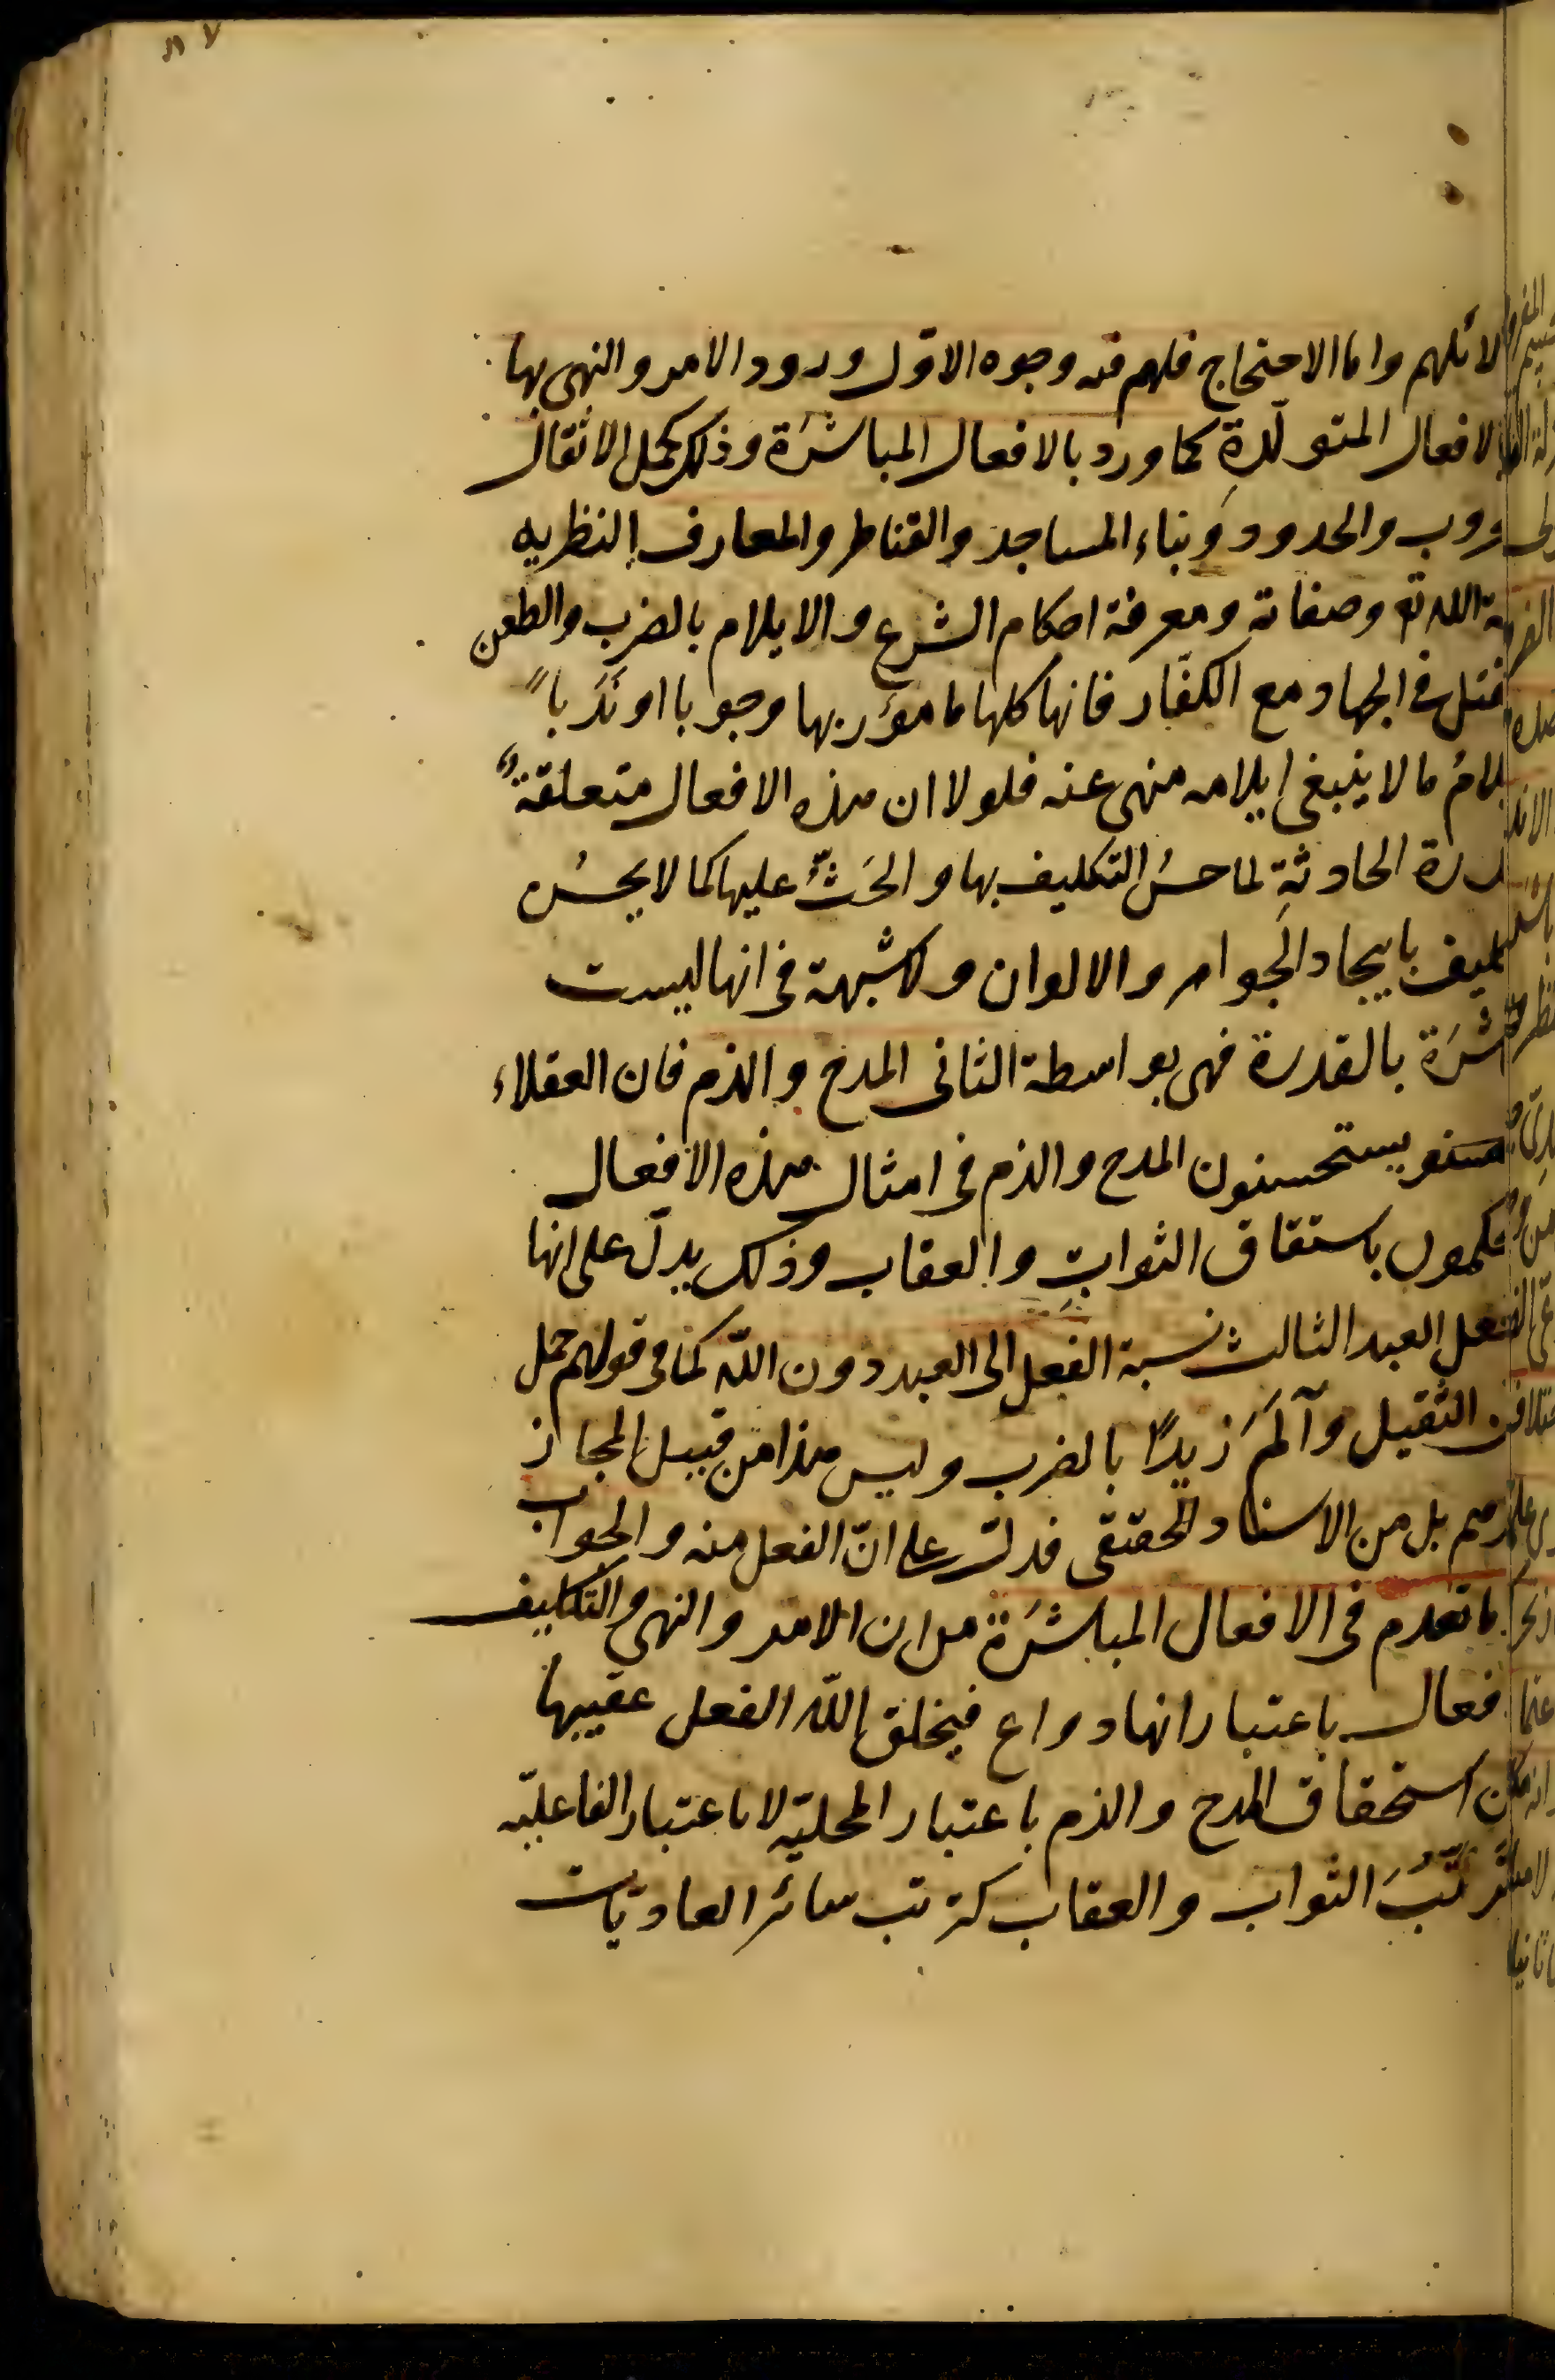 لائلهم واما الاحتجاج فلهم فيه وجوه الاول ورود الامر والنهى بها
الافعال المتولّدةِ كما ورد بالافعال المباشَرَة وذلك كحمل الاثقال
روب والحدود وبناء المساجد والقناطر والمعارف النظريه
ة الله تع وصفاته ومعرفة احكام الشرع والايلام بالضرب والطعن
قتل فى الجهاد مع الكفّار فانها كلها مامؤر بها وجوبا او نَدَباً
يلامُ ما لا ينبغى ايلامه منهى عنه فلولا ان هذه الافعال متعلقةٌ
درة الحادثةِ لما حسُن التكليف بها والحَثُّ عليها كما لا يحسُن
ليف بايجاد الجواهر والالوان ولا شبهة فى انها ليست
شَرَة بالقدرة فهى بواسطة الثانى المدح والذم فان العقلاء
يستحسنون المدح والذم فى امثال هذه الافعال
كمون باستقاق الثواب والعقاب وذلك يدلّ على انها
فعل العبد الثالث نسبة الفعل الى العبد دون اللّه كما فى قولهم حمل
الثقيل وآلَمَ زيداً بالضرب وليس هذا من قبيل المجاز
هم بل من الاسناد الحقيقى فدلت على انّ الفعل منه والجواب
ما تقدم فى الافعال المباشَرَة من ان الامر والنهى والتكليف
فعال باعتبار انها دواع فيخلق اللّه الفعل عقيبها
استحقاق المدح والذم باعتبار المحليّة لا باعتبار الفاعليّه
ترتّبُ الثواب والعقاب كترتب سائر العاديّات